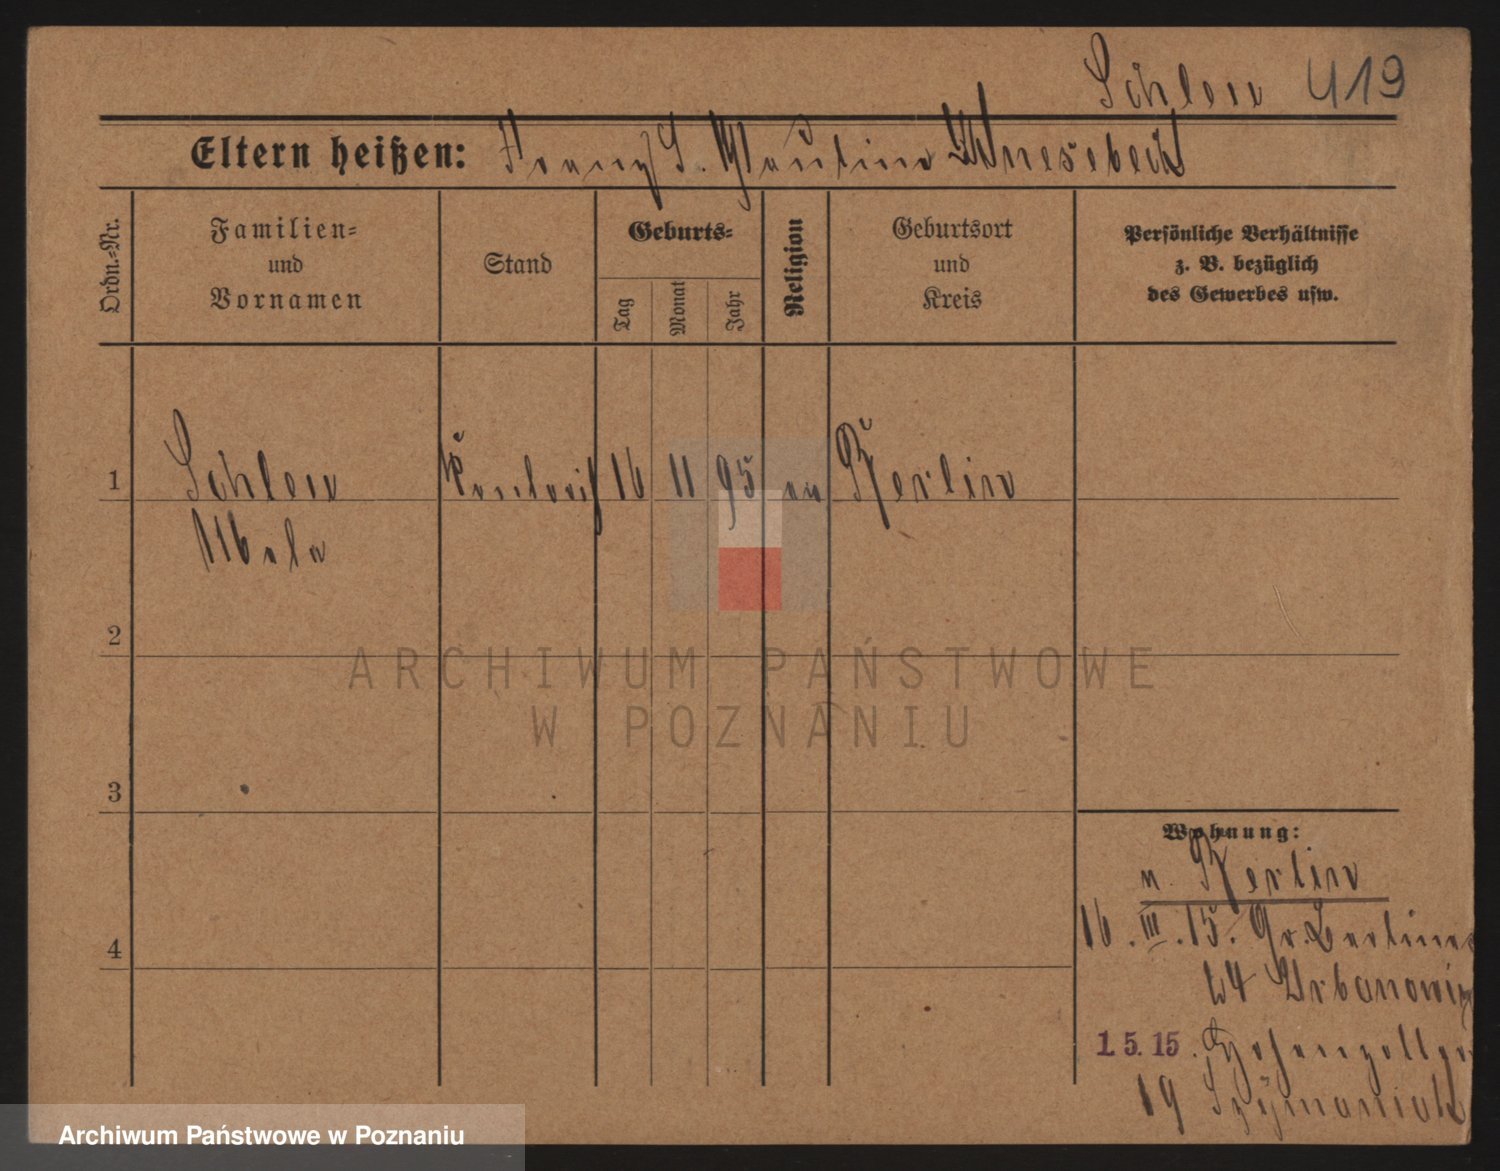 Schlen 419
Eltern heißen: Franz S. Pauline Knesebeck
Ordn.-Nr.
Familien-
und
Vornamen
Stand
Geburts-
Tag
Monat
Jahr
Religion
Geburtsort
und
Kreis
Persönliche Verhältnisse
z. B. bezüglich
des Gewerbes usw.
1 Schlen 16 11 95 ev Berlin
2
3
4
Wohnung:
n. Berlin
16. III. 15. Gr. Berliner
Urbanowicz
1. 5. 15. Hohenzoller
19 Szymaniak
ARCHIWUM PAŃSTWOWE
W POZNANIU
Archiwum Państwowe w Poznaniu